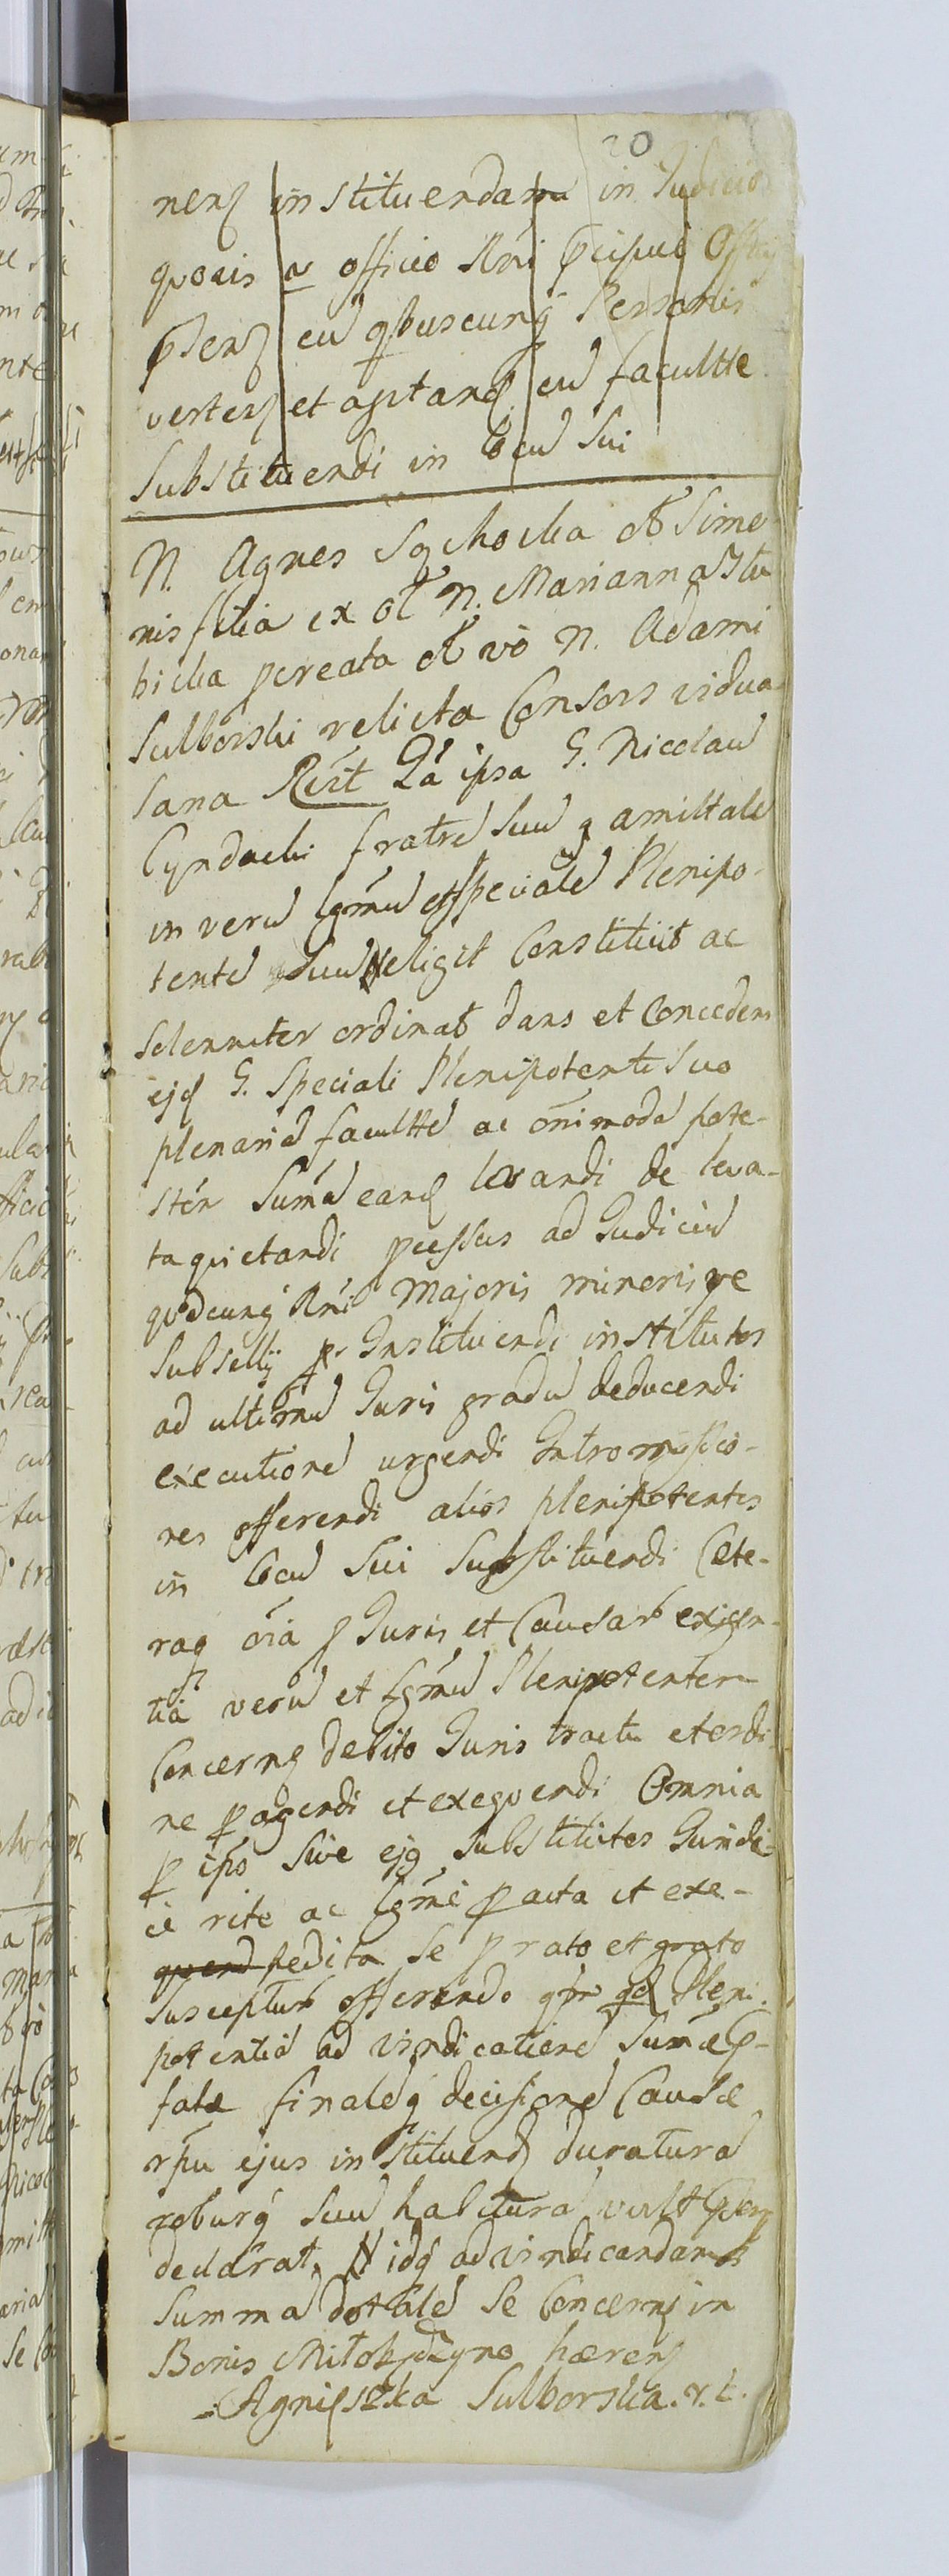 20
nenꝭ instituendam in Judicio
quovis a officio Rni
cu qbuscunq Personis
vertenꝭ et agitanꝭ cu facultte
Substituendi in locu Sui
N. Agnes Sychocka olt Simo
nis filia ex olt N. Marianna
bicka pcreata olt vo N. Adami
Sulborski relicta Consors vidua
Sana Rect Qa ipsa G. Nicolau
Cyndacki fratre Suu amittale
in veru lgmu et speciale Plenipo-
tente Suu eligit Constituit ac
solenniter ordinat dans et Concedens
ejꝭ G. Speciali Plenipotenti Suo
plenaria facultte ac omimoda pote-
stem Suma eanꝭ levandi de leva-
ta quietandi pcessus ad Judiciu
quodcunq Rni Majoris minorisve
Subsellij Instituendi institutos
ad ultimu Juris gradu deducendi
executione urgendi Intromissio-
nes offerendi alios plenipotentes
in locu Sui Substituendi Cete-
raq oia p Juris et Causar exigen-
tia veru et lgmu Plenipotentem
Concernꝭ debito Juris tractu et ordi-
ne pagendi et exequendi Omnia
p ipso Sive ejq Substitutos Juridi-
ce rite ac lgme pacta et exe-
quend pedita Se p rato et grato
Suscepturꝭ offerendo Pleni-
potentia ad vindicatione Sumæ p-
fatæ finaleq decisione Causæ
rpu ejus instituenꝭ duratura
roburq Suu habitura vult
declarat, N idq ad vindicandam
Summa dotale Se Concernꝭ in
Bonis hærenꝭ
Agnięszka Sulborska. r. t.